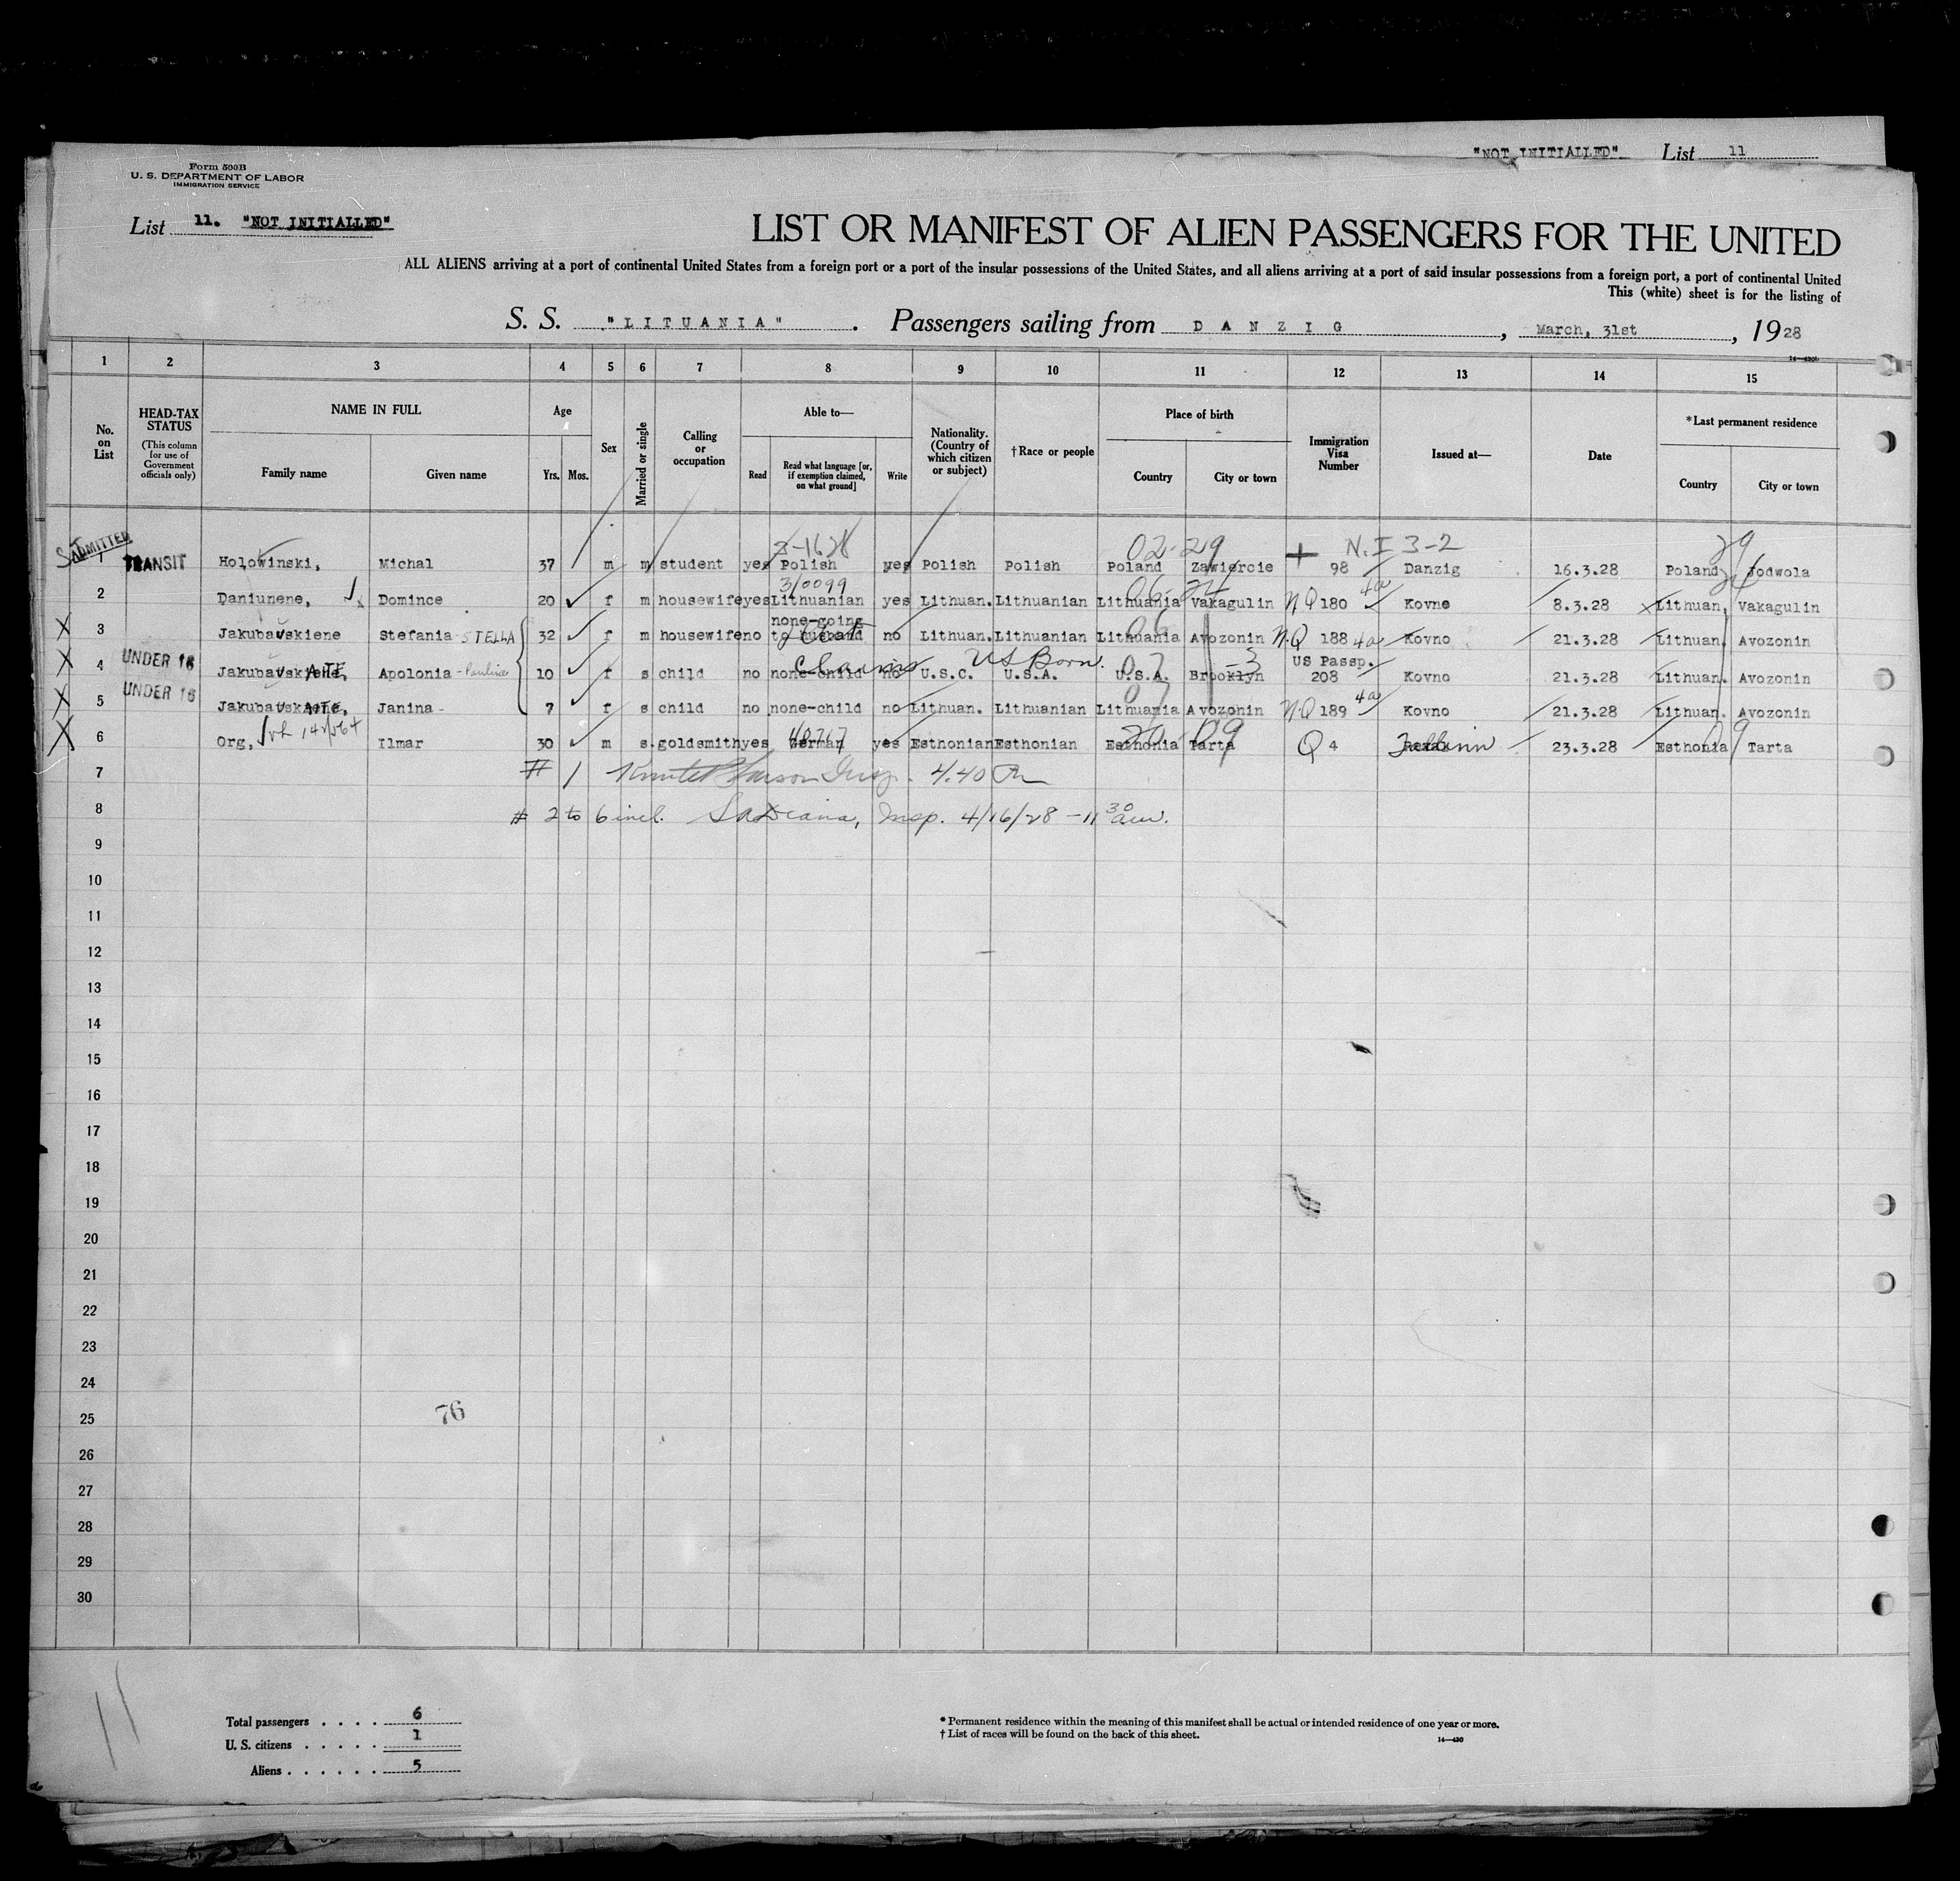 "NOT INITIALLED" List 11
Form 500B
U. S. DEPARTMENT OF LABOR
IMMIGRATION SERVICE
List 11. "NOT INITIALLED"
LIST OR MANIFEST OF ALIEN PASSENGERS FOR THE UNITED
ALL ALIENS arriving at a port of continental United States from a foreign port or a port of the insular possessions of the United States, and all aliens arriving at a port of said insular possessions from a foreign port, a port of continental United
This (white) sheet is for the listing of
S. S. "LITUANIA". Passengers sailing from DANZIG, March, 31st, 1928
14—430b
1 2 3 4 5 6 7 8 9 10 11 12 13 14 15
No. on List
HEAD-TAX STATUS (This column for use of Government officials only)
NAME IN FULL
Family name Given name
Age
Yrs. Mos.
Sex
Married or single
Calling or occupation
Able to—
Read Read what language [or, if exemption claimed, on what ground] Write
Nationality. (Country of which citizen or subject)
†Race or people
Place of birth
Country City or town
Immigration Visa Number
Issued at—
Date
*Last permanent residence
Country City or town
ADMITTED 3-1628 02-29 + N.I 3-2 29
1 TRANSIT Holowinski, Michal 37 m m student yes Polish yes Polish Polish Poland Zawiercie 98 Danzig 16.3.28 Poland Jodwola
3/0099 06-24
2 Daniunene, Domince 20 f m housewife yes Lithuanian yes Lithuan. Lithuanian Lithuania Vakagulin NQ 180 Kovno 8.3.28 Lithuan, Vakagulin
none-going
X 3 Jakubauskiene Stefania-STELLA 32 f m housewife no to husband no Lithuan. Lithuanian Lithuania Avozonin N.Q 188 Kovno 21.3.28 Lithuan. Avozonin
Claims US Born. 07 -3 US Passp.
X 4 UNDER 16 Jakubauskiene, AITE, Apolonia-Pauline 10 f s child no none-child no U.S.C. U.S.A. U.S.A. Brooklyn 208 Kovno 21.3.28 Lithuan. Avozonin
X 5 UNDER 16 Jakubauskiene, AITE, Janina- 7 f s child no none-child no Lithuan. Lithuanian Lithuania Avozonin NQ 189 Kovno 21.3.28 Lithuan. Avozonin
40767 09
X 6 Org, Ilmar 30 m s. goldsmith yes German yes Esthonian Esthonian Esthonia Tarta Q 4 Tallinn 23.3.28 Esthonia Tarta
7 # 1 Insp. 4.40
8 # 2 to 6 incl. Insp. 4/16/28 - 11 30 am.
9
10
11
12
13
14
15
16
17
18
19
20
21
22
23
24
25
76
26
27
28
29
30
11
Total passengers . . . . 6
U. S. citizens . . . . . 1
Aliens . . . . . . 5
* Permanent residence within the meaning of this manifest shall be actual or intended residence of one year or more.
† List of races will be found on the back of this sheet.
14—430